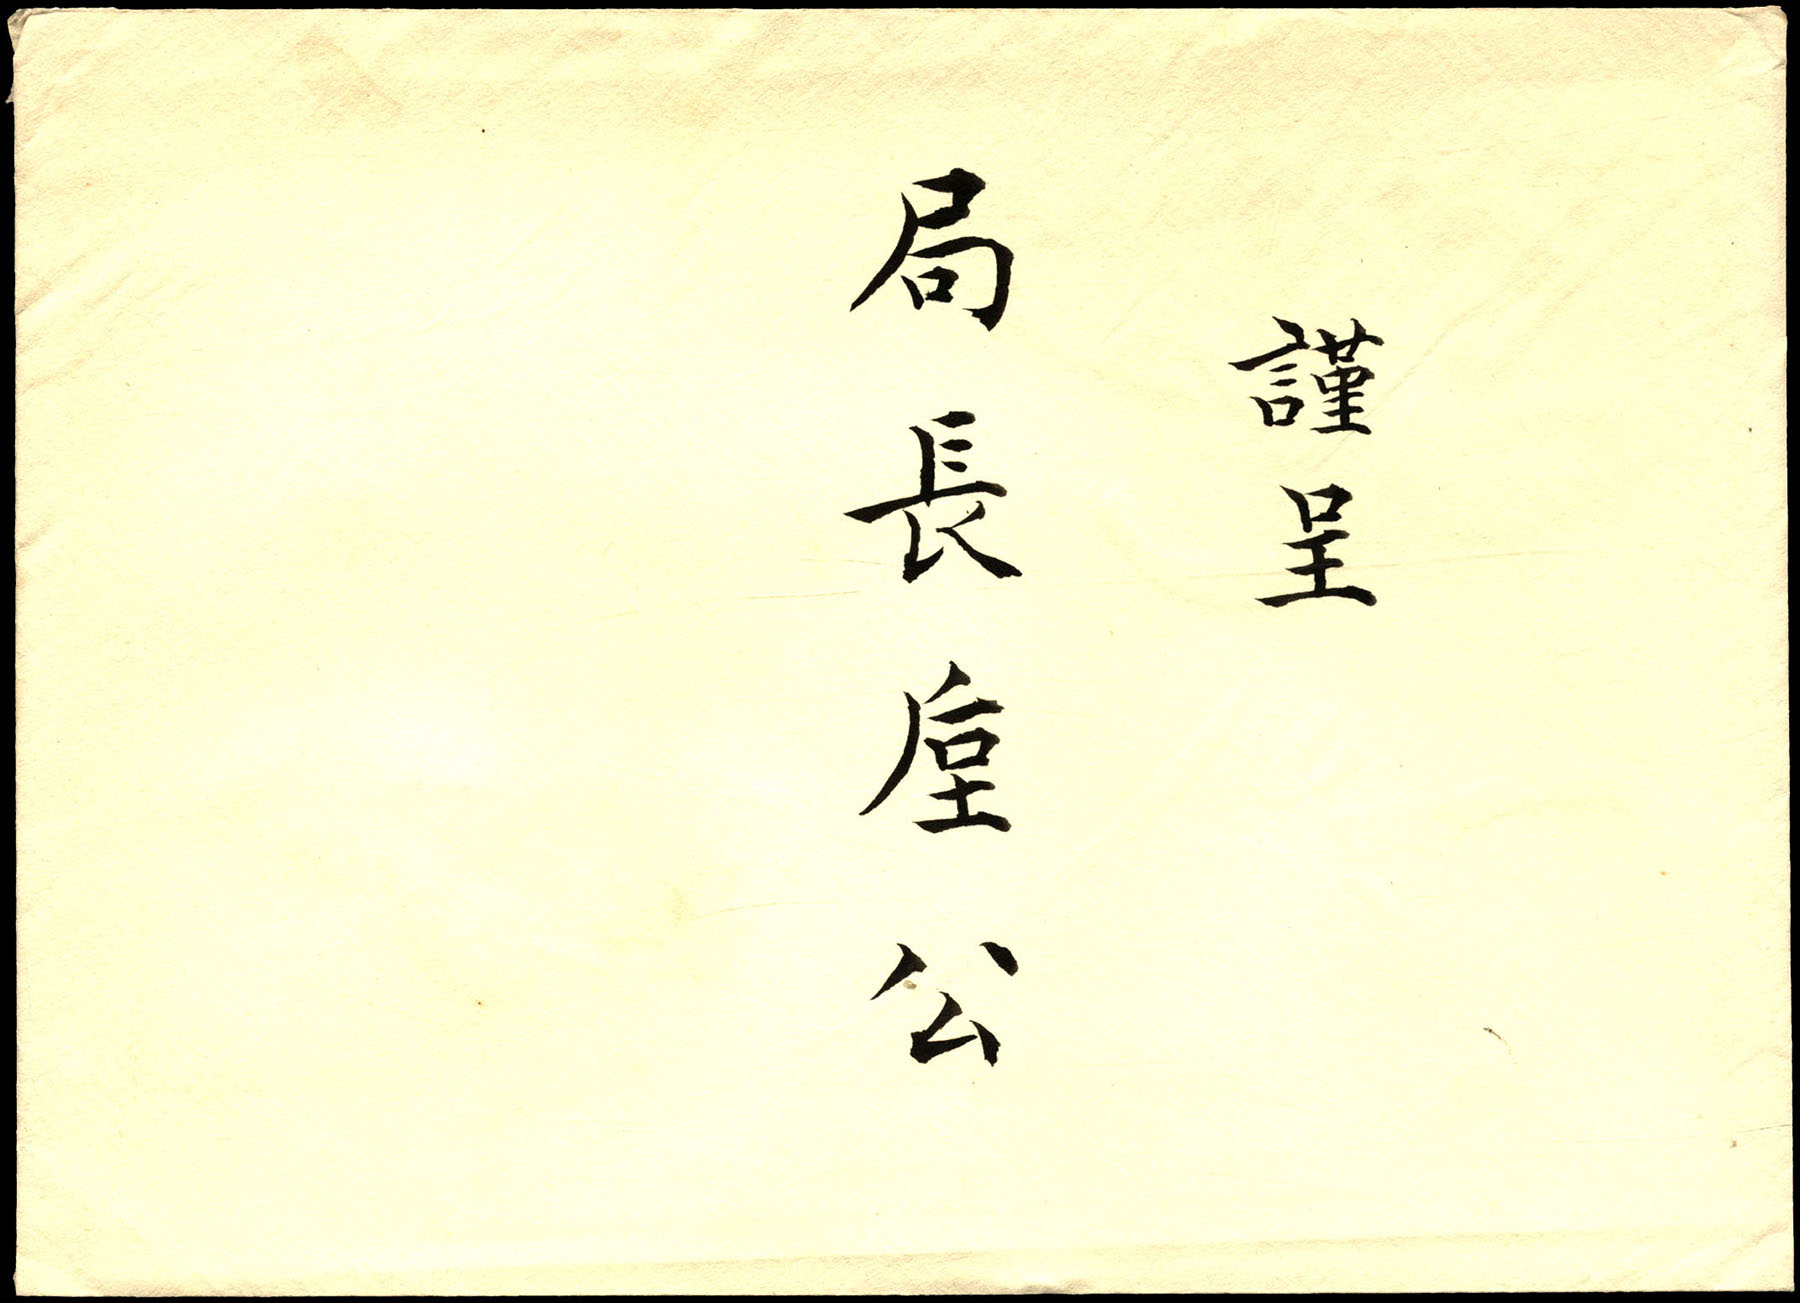 謹呈
局長垕公